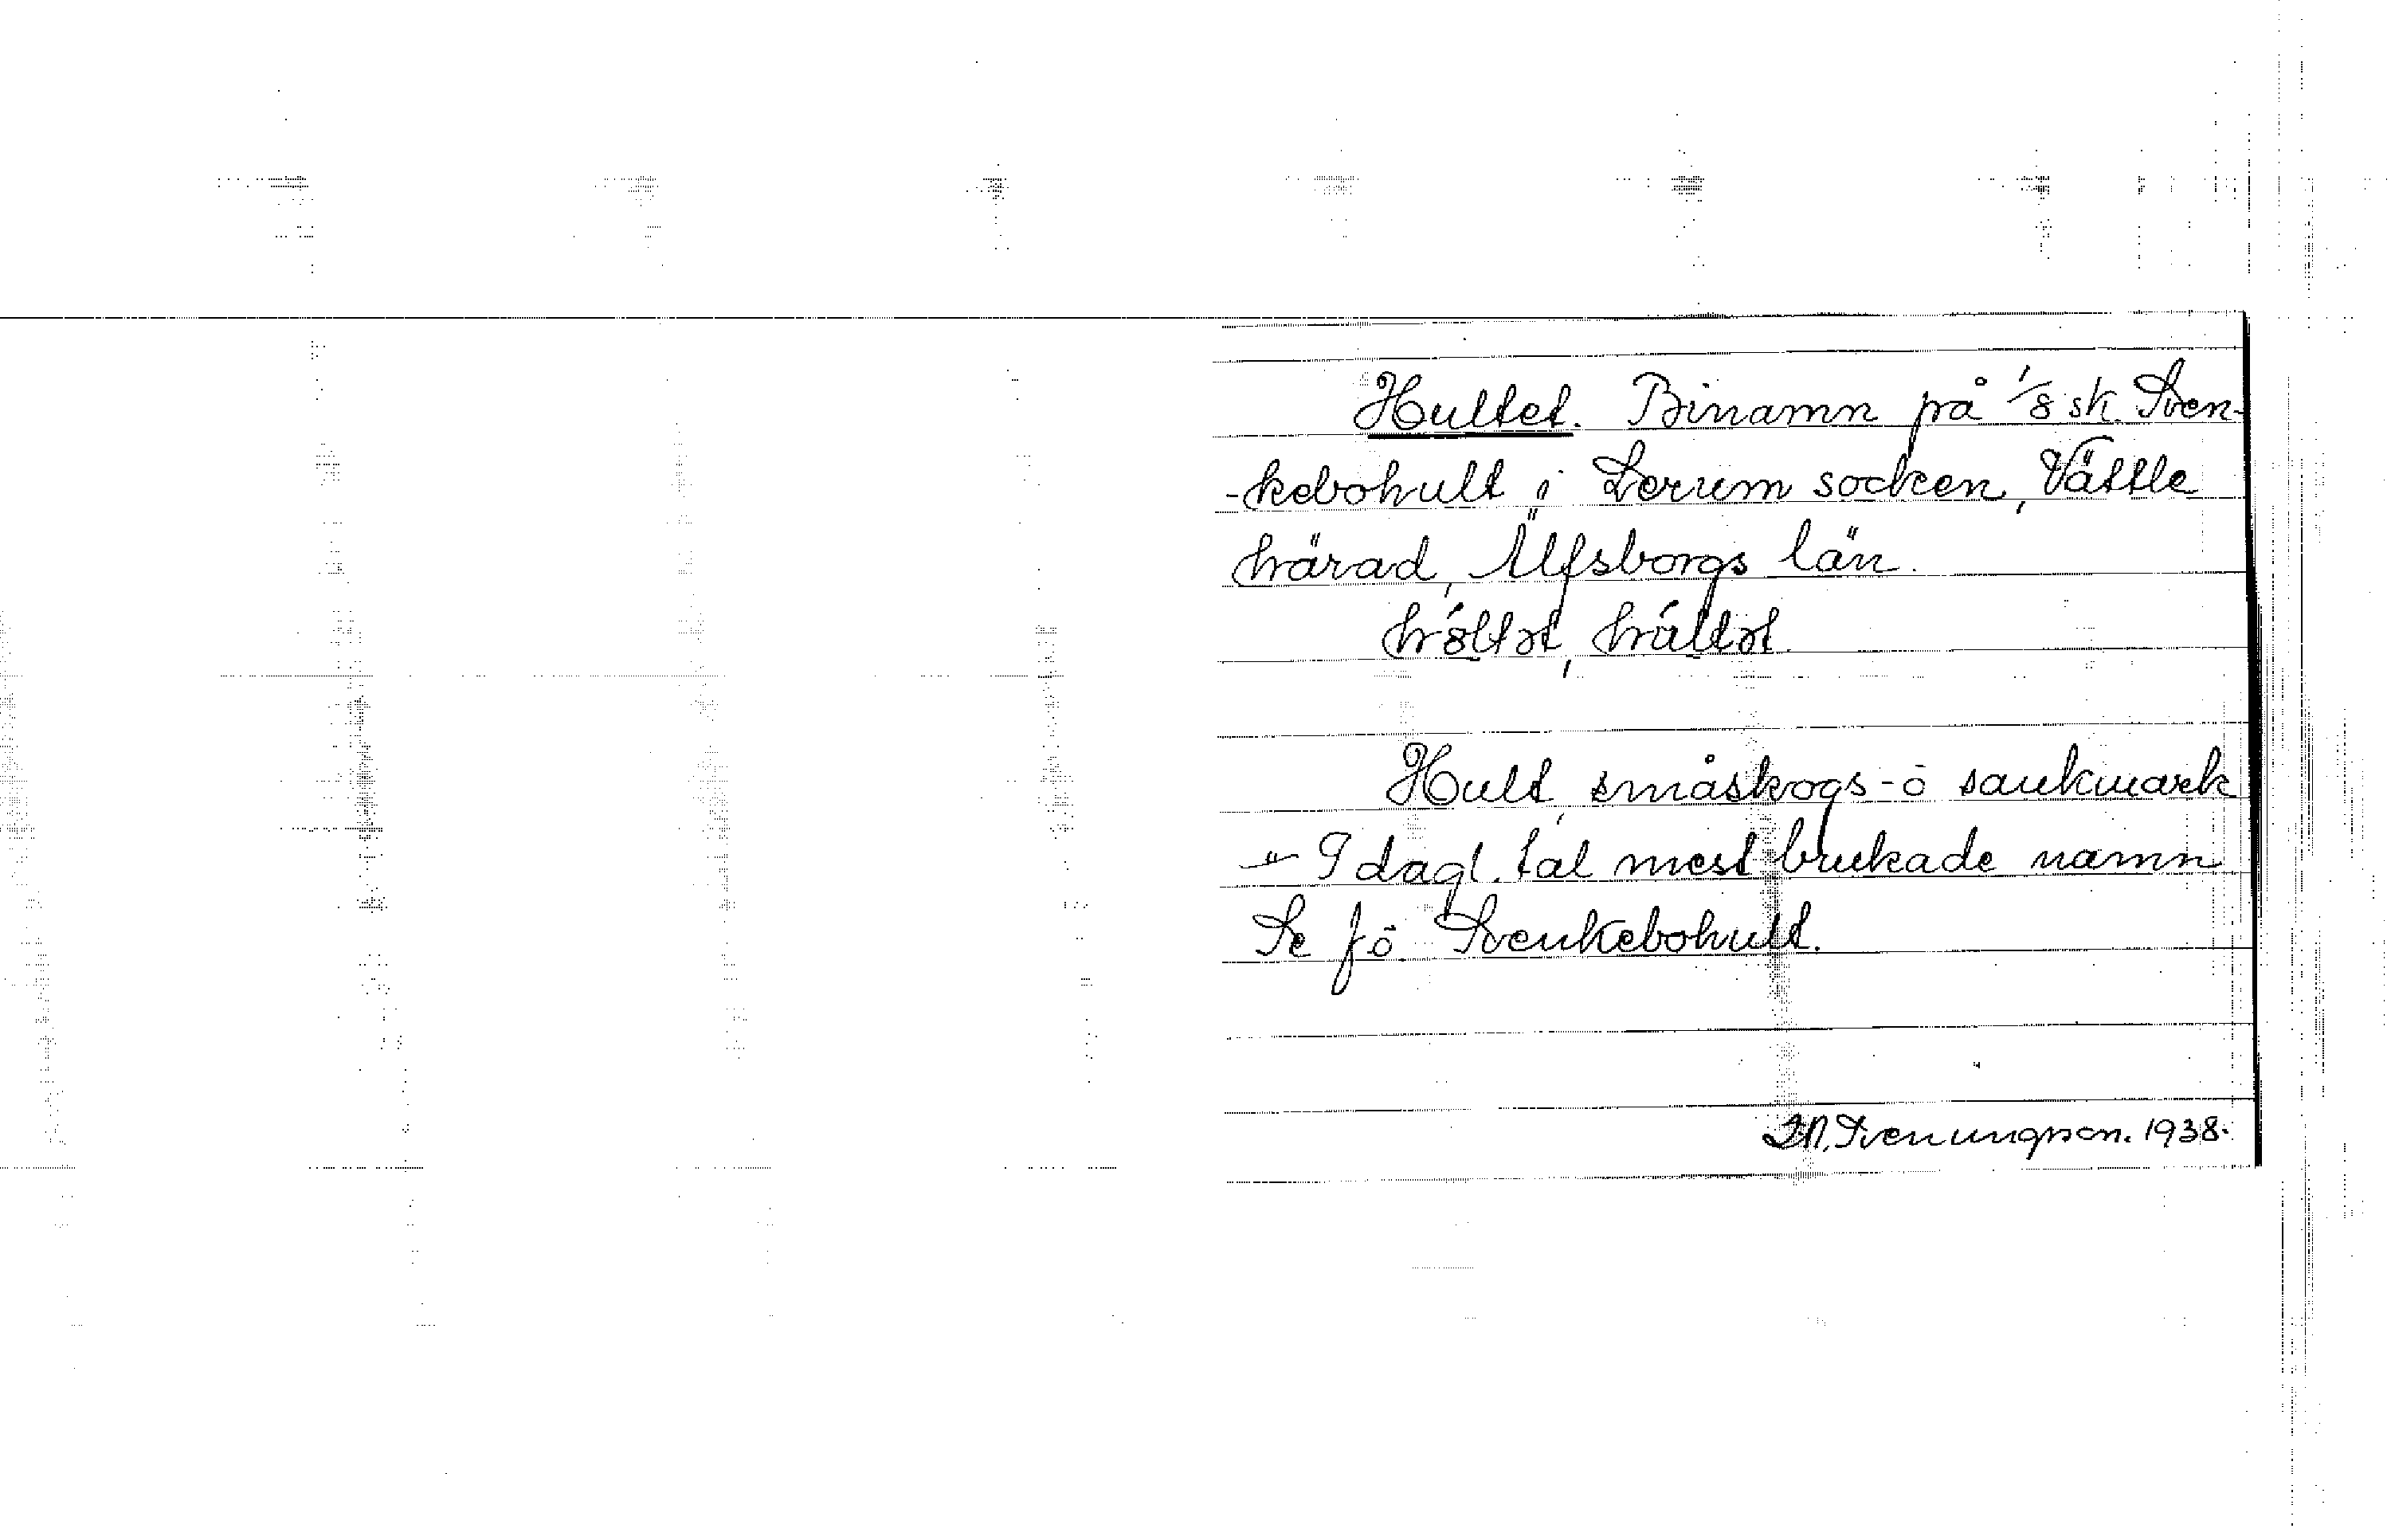 Hultet. Binamn på 1/8 sk. Sven-
-kebohult i Lerum socken, Vättle
härad, Älfsborgs län.
Hult, småskogs-ö sankmark
I dagl. tal mest brukade namn
Se fö. Svenkebohult.
D.N. Svenungson. 1938.